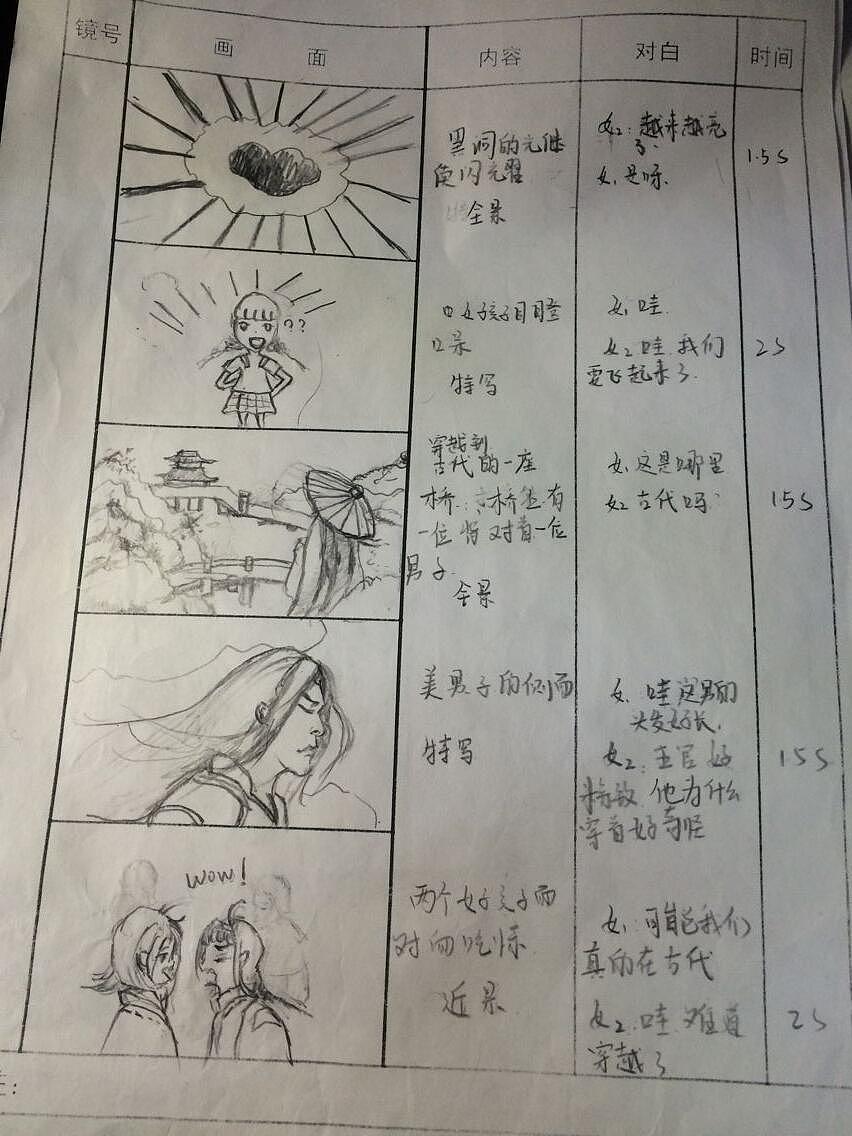 镜号 画面 内容 对白 时间
黑洞的光继
使闪光耀
全景
女2:越来越亮
了
女1是呀.
1.5S
??
口女孩子目瞪
口呆
特写
女1哇.
女2哇.我们
要飞起来了
2S
穿越到
古代的一座
桥. 桥上有
一位 对着一位
男子.
全景
女1这是哪里
女2古代吗
15S
美男子的侧面
特写
女1哇这男的
头发好长,
女2:五官好
精致.他为什么
穿着好奇怪
15S
wow!
两个女孩子面
对面吃惊
近景
女1:可能我们
真的在古代
女2:哇.难道
穿越了
2S
注: